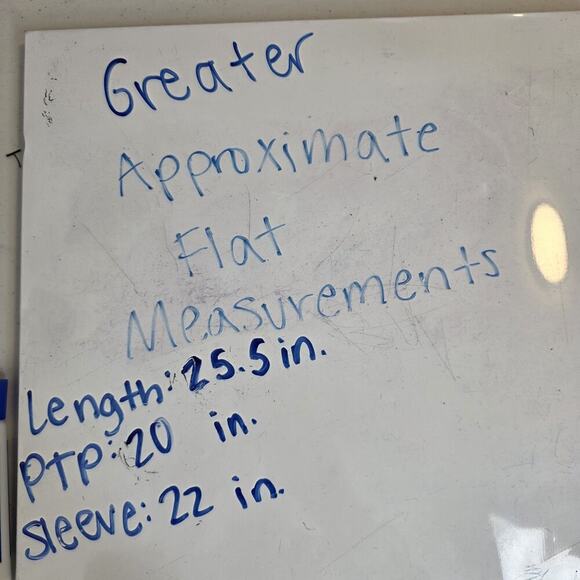 Greater
Approximate
Flat
Measurements
Length: 25.5 in.
PTP: 20 in.
Sleeve: 22 in.